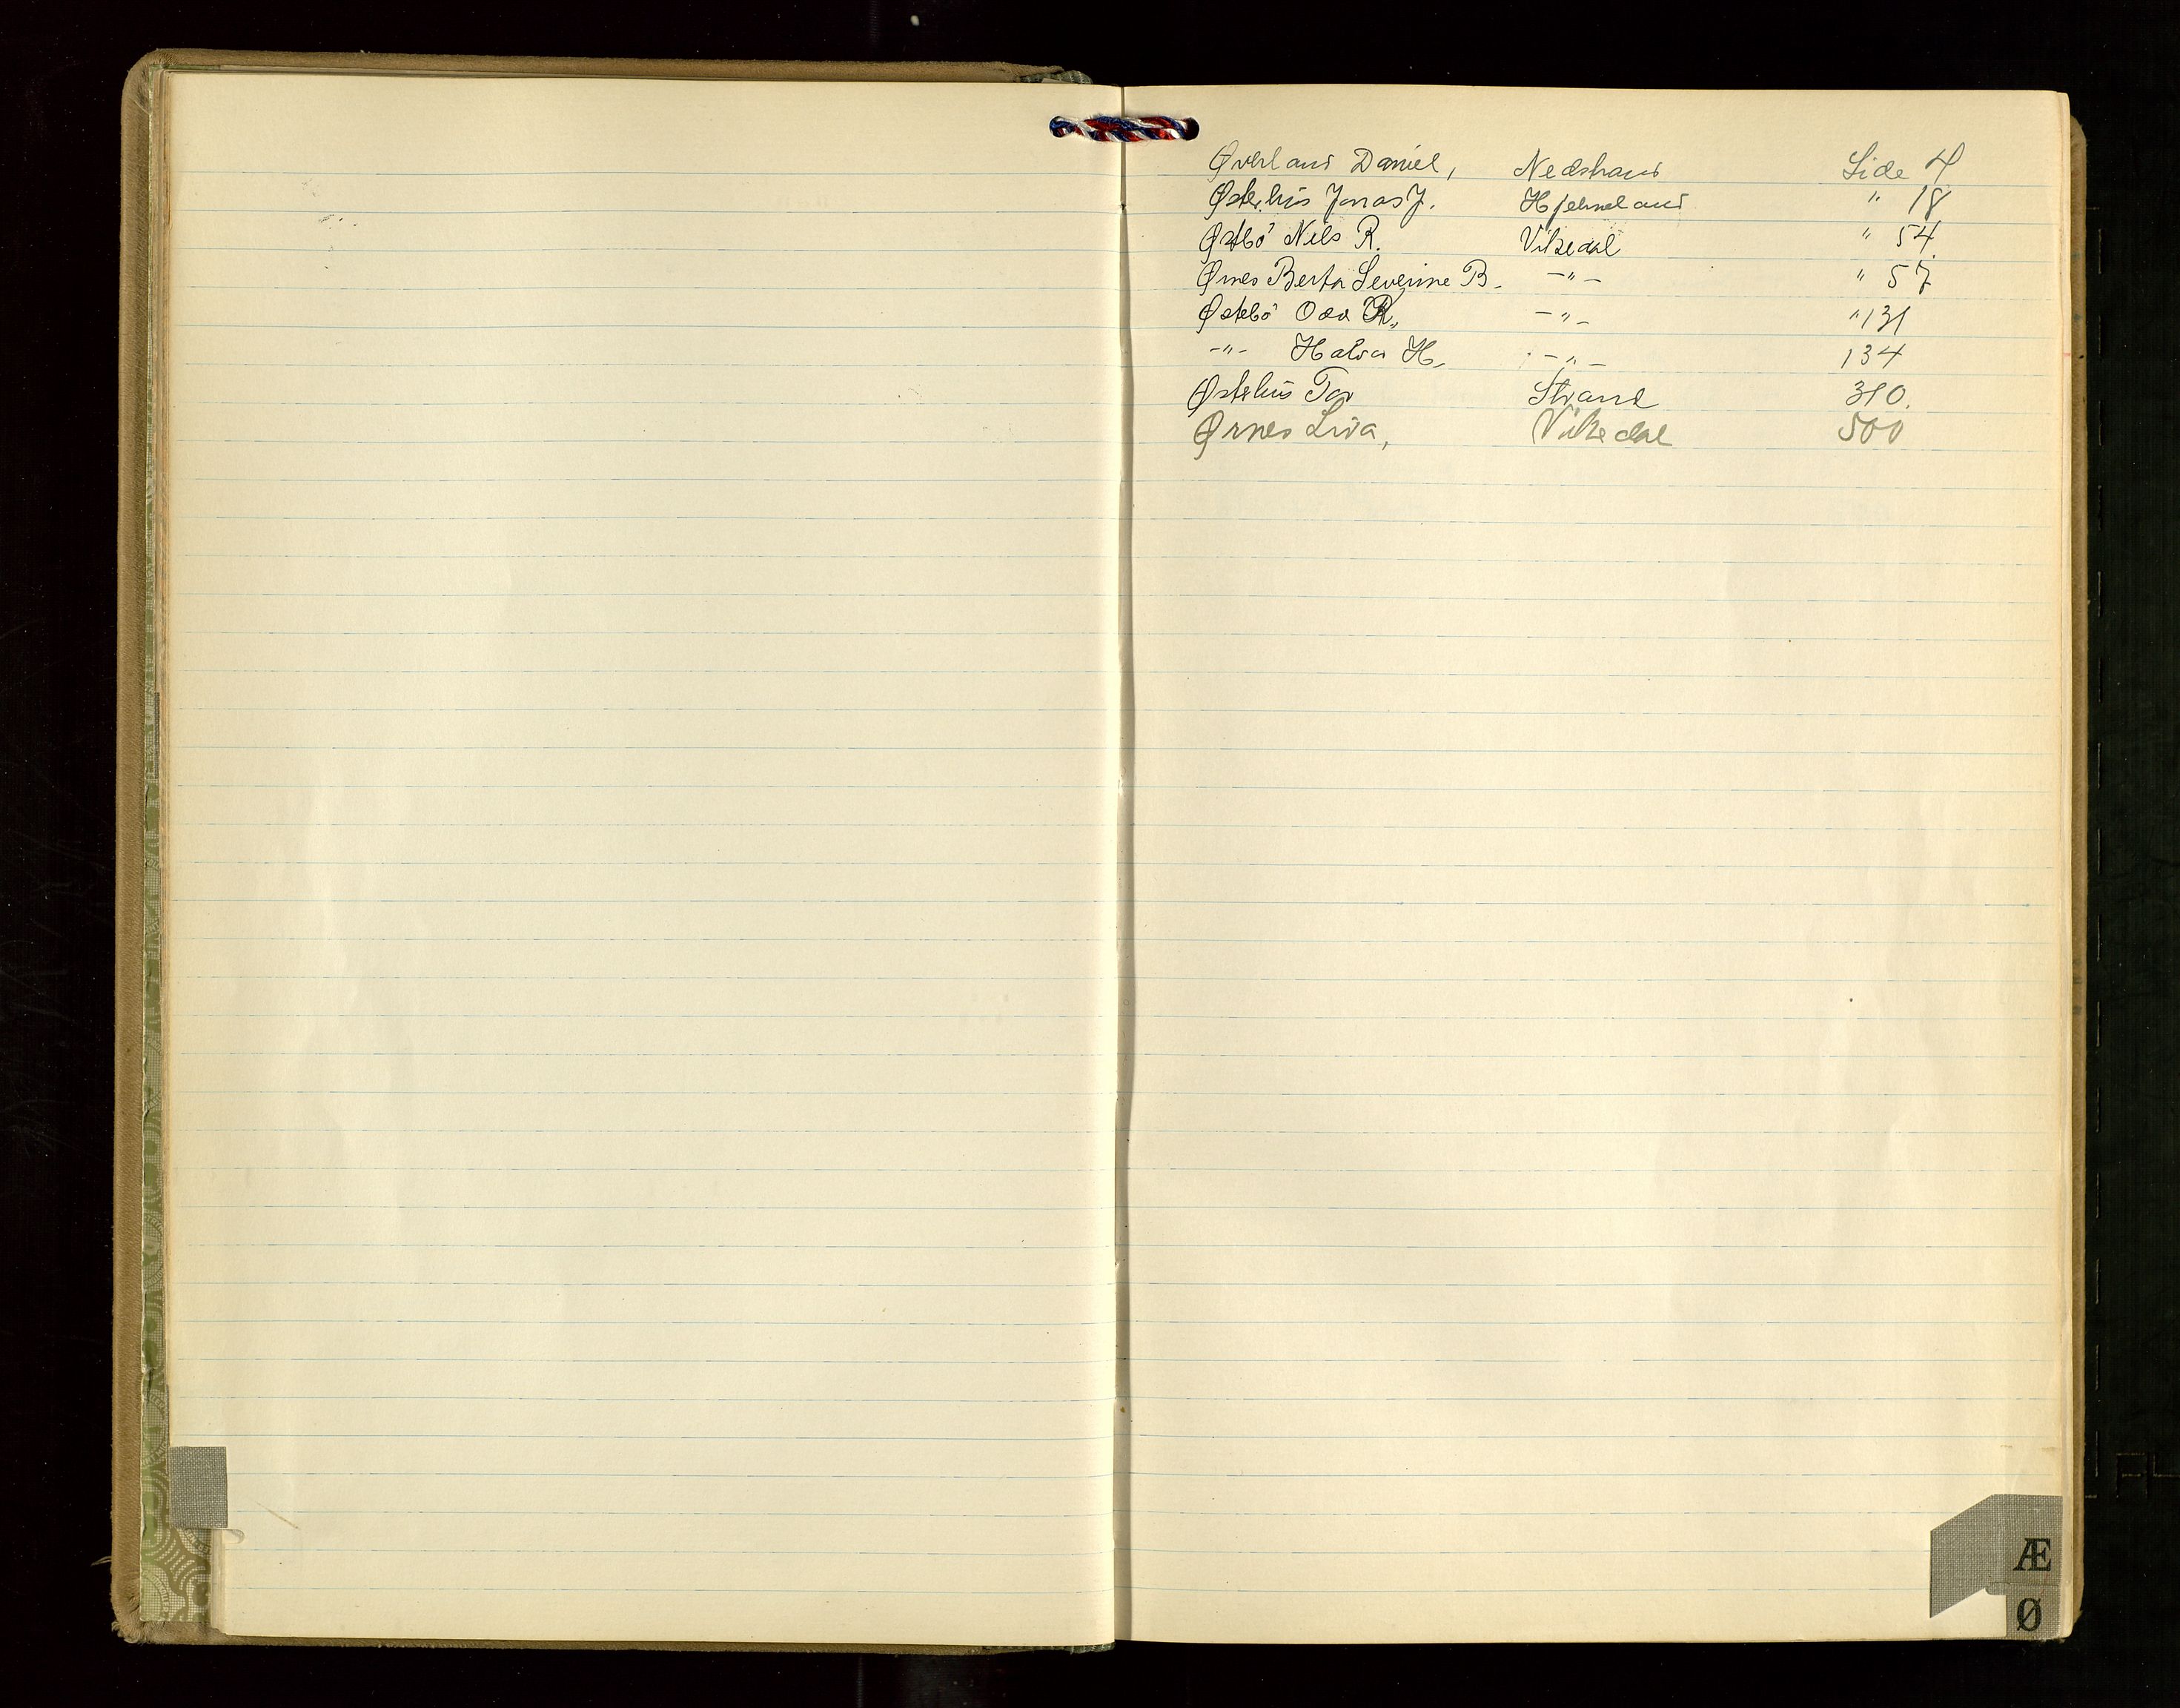 Øverland Daniel, Nedstrand Side 4
Østerhus Jonas J. Hjelmeland " 18
Østbö Nils R. Vikedal " 54
Ørnes Berta Severine B. -"- " 57
Østebö Odd R., -"- " 131
-"- Halvor H. -"- 134
Østehus Tor Strand 310.
Ørnes Liva, Vikedal 500
Æ
Ø